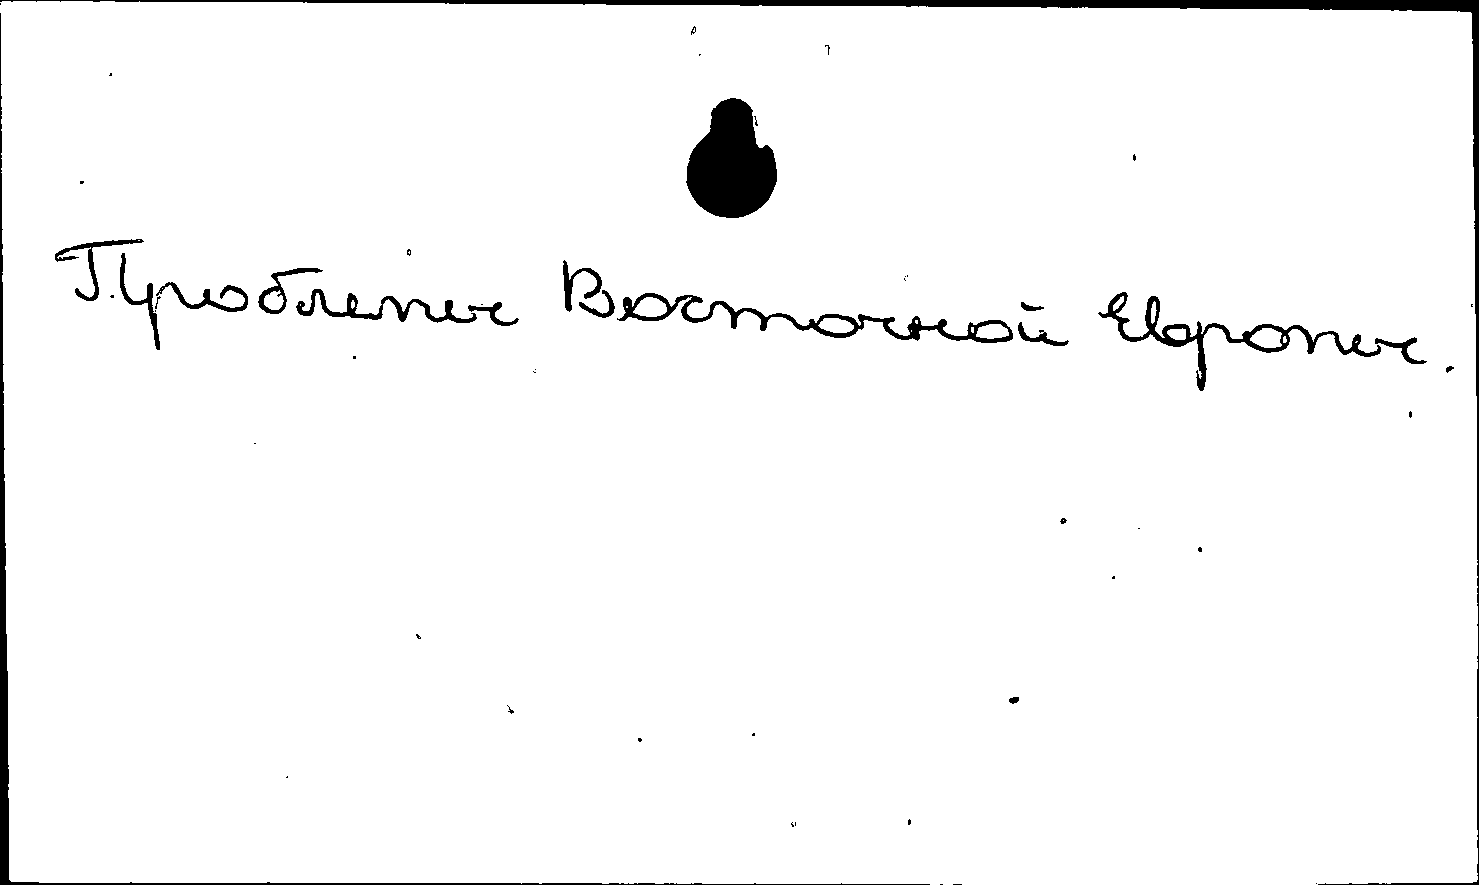 Проблемы Восточной Европы.